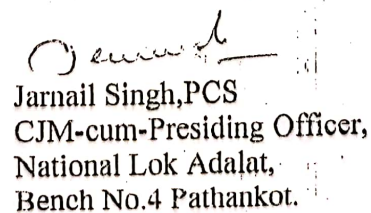 Jarnail Singh,PCS
CJM-cum-Presiding Officer,
National Lok Adalat,
Bench No.4 Pathankot.